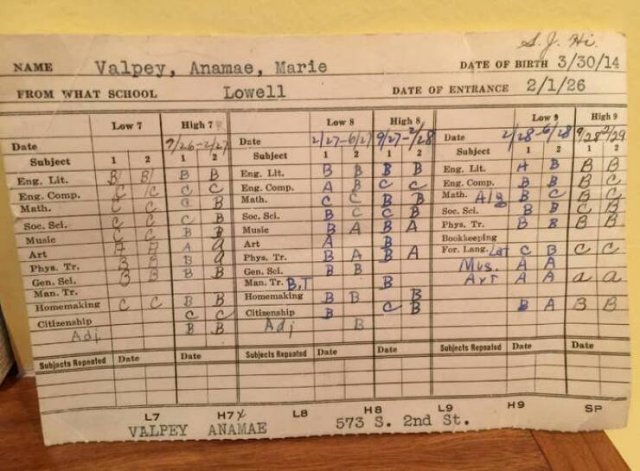 S. J. Hi.
NAME Valpey, Anamae, Marie DATE OF BIRTH 3/30/14
FROM WHAT SCHOOL Lowell DATE OF ENTRANCE 2/1/26
Low 7 High 7 Low 8 High 8 Low 9 High 9
Date 9/26-2/27 Date 2/27-6/27 9/27-2/28 Date 2/28-6/28 9/28 2/29
Subject 1 2 1 2 Subject 1 2 1 2 Subject 1 2 1 2
Eng. Lit. B B B B Eng. Lit. B B B B Eng. Lit. A B B B
Eng. Comp. C C C C Eng. Comp. A B C C Eng. Comp. B B B C
Math. C C C B Math. C C B B Math. Alg B C C B
Soc. Sci. C C C C Soc. Sci. B C C B Soc. Sci. B B C B
Music C C B B Music B A B A Phys. Tr. B B B B
Art A A A a Art A B Bookkeeping
Phys. Tr. B B B B Phys. Tr. B A B A For. Lang. Lat C B C C
Gen. Sci. B B B B Gen. Sci. B B Mus. A A
Man. Tr. Man. Tr. B,T B Art A A a a
Homemaking C C B B Homemaking B B B
Citizenship C C Citizenship B C B B A B B
Adj B B Adj B
Subjects Repeated Date Date Subjects Repeated Date Date Subjects Repeated Date Date
L7 H7 L8 H8 L9 H9 SP
VALPEY ANAMAE 573 S. 2nd St.